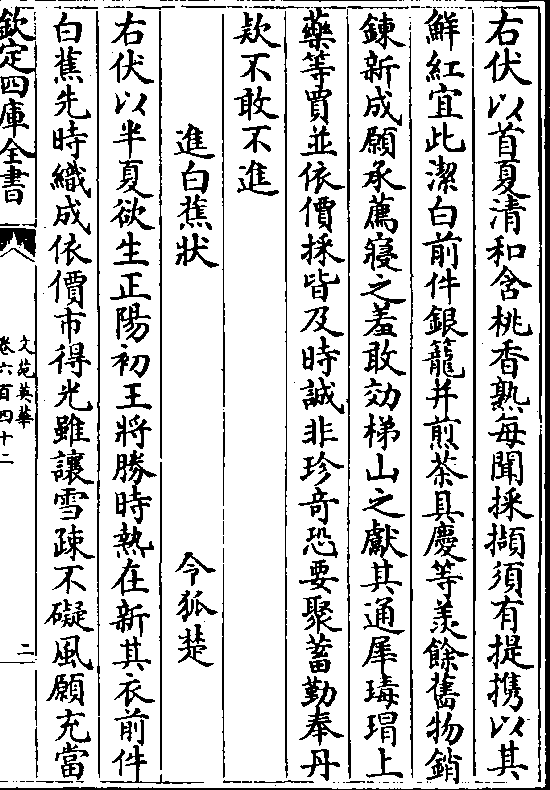 右伏以首夏清和含桃香熟每聞採擷須有提攜以其
鮮紅宜此潔白前件銀籠并煎茶具慶等羨餘舊物銷
鍊新成願承薦寢之羞敢効梯山之獻其通犀瑇瑁上
藥等賈並依價採皆及時誠非珍竒恐要聚蓄勤奉丹
欵不敢不進
進白蕉狀 令狐楚
右伏以半夏欲生正陽初王將勝時熱在新其衣前件
白蕉先時織成依價市得光雖讓雪疎不礙風願充當
欽定四庫全書
文苑英華
卷六百四十二
二